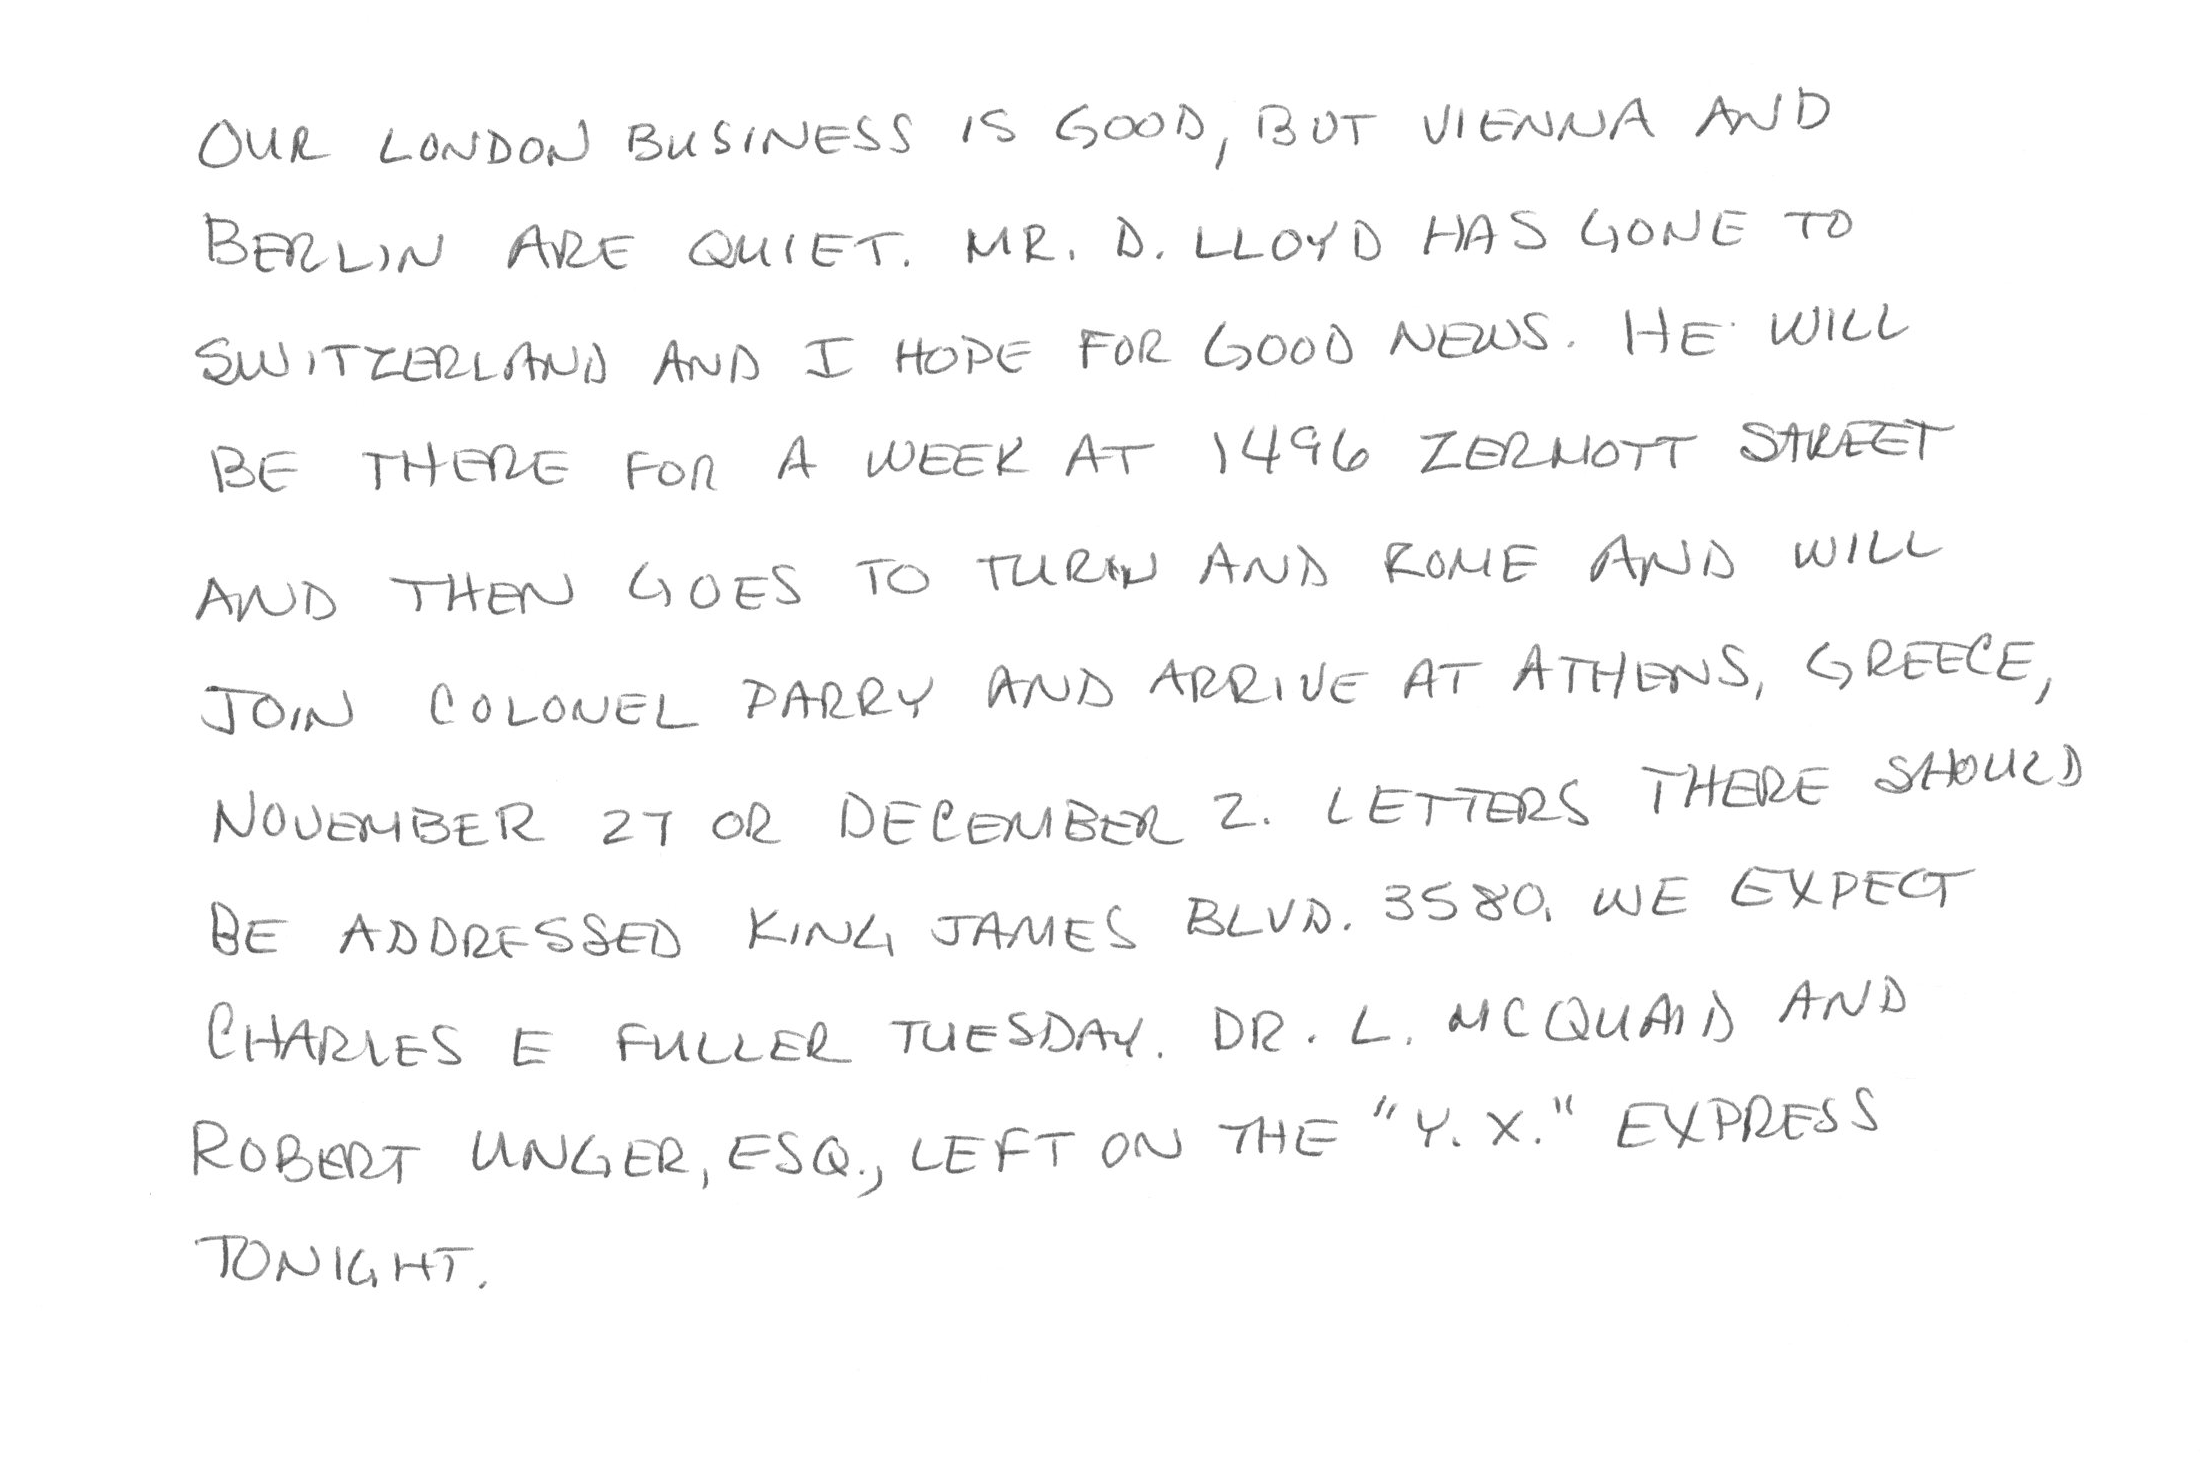 OUR LONDON BUSINESS IS GOOD, BUT VIENNA AND
BERLIN ARE QUIET. MR. D. LLOYD HAS GONE TO
SWITZERLAND AND I HOPE FOR GOOD NEWS. HE WILL
BE THERE FOR A WEEK AT 1496 ZERMOTT STREET
AND THEN GOES TO TURIN AND ROME AND WILL
JOIN COLONEL PARRY AND ARRIVE AT ATHENS, GREECE,
NOVEMBER 27 OR DECEMBER 2. LETTERS THERE SHOULD
BE ADDRESSED KING JAMES BLVD. 3580. WE EXPECT
CHARLES E FULLER TUESDAY. DR. L. MCQUAID AND
ROBERT UNGER, ESQ., LEFT ON THE "Y. X." EXPRESS
TONIGHT.